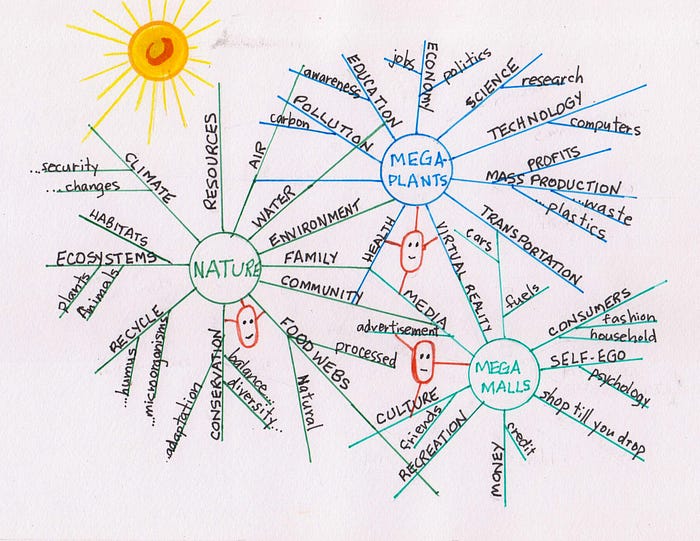 NATURE
RESOURCES
CLIMATE
...security
...changes
HABITATS
ECOSYSTEMS
plants
Animals
RECYCLE
...humus
...microorganisms
CONSERVATION
...adaptation
balance...
diversity...
FOOD WEBS
Natural
processed
COMMUNITY
FAMILY
ENVIRONMENT
WATER
AIR
MEGA-
PLANTS
POLLUTION
carbon
EDUCATION
awareness
ECONOMY
jobs
politics
SCIENCE
research
TECHNOLOGY
computers
PROFITS
MASS PRODUCTION
...waste
...plastics
TRANSPORTATION
cars
fuels
VIRTUAL REALITY
HEALTH
MEDIA
advertisement
MEGA
MALLS
CONSUMERS
fashion
household
SELF-EGO
psychology
shop till you drop
credit
MONEY
RECREATION
friends
CULTURE